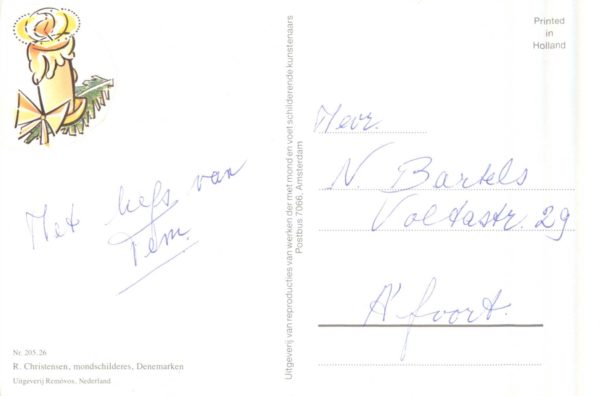 Met liefs van
Tem.
Nr. 205.26
R. Christensen, mondschilderes, Denemarken
Uitgeverij Removos, Nederland.
Uitgeverij van reproducties van werken der met mond en voet schilderende kunstenaars
Postbus 7066, Amsterdam
Printed
in
Holland
Mevr.
N. Bartels
Voltastr. 29
A'foort.